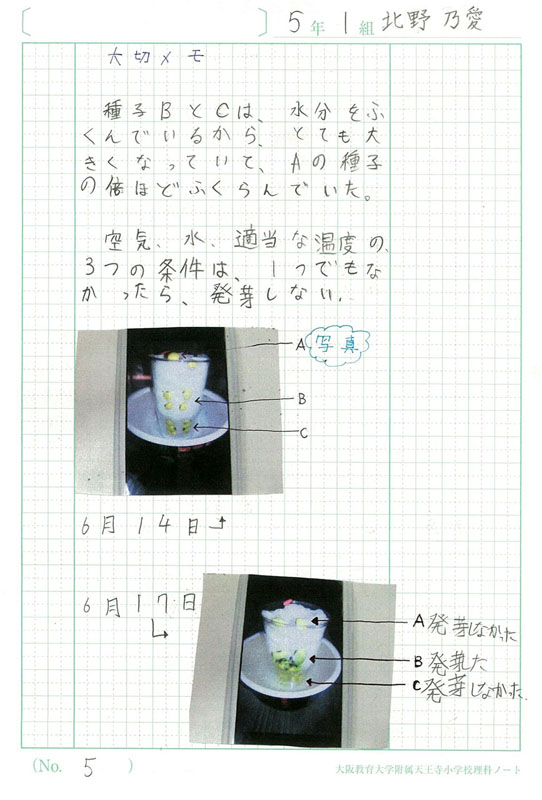 5年 1組 北野 乃愛
大切メモ
種子BとCは、水分をふ
くんでいるから、とても大
きくなっていて、Aの種子
の倍ほどふくらんでいた。
空気、水、適当な温度の、
3つの条件は、1つでもな
かったら、発芽しない。
A 写真
B
C
6月14日
6月17日
A 発芽しなかった
B 発芽した
C 発芽しなかった。
(No. 5 )
大阪教育大学附属天王寺小学校理科ノート